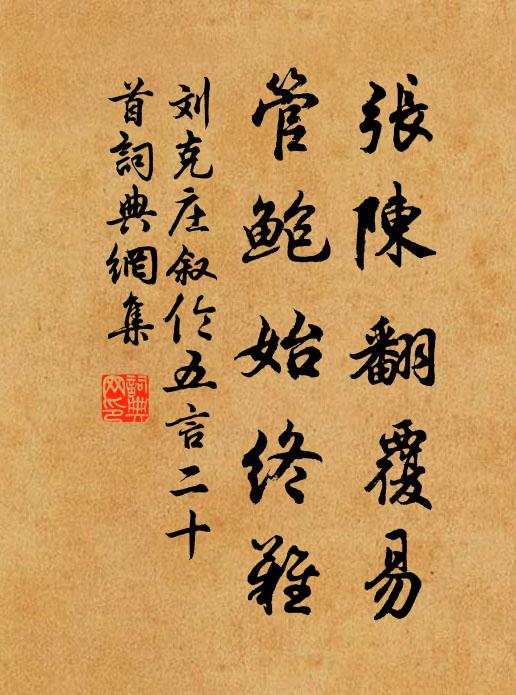 張陳翻覆易
管鮑始終難
刘克庄叙伦五言二十
首詞典網集
詞典網印